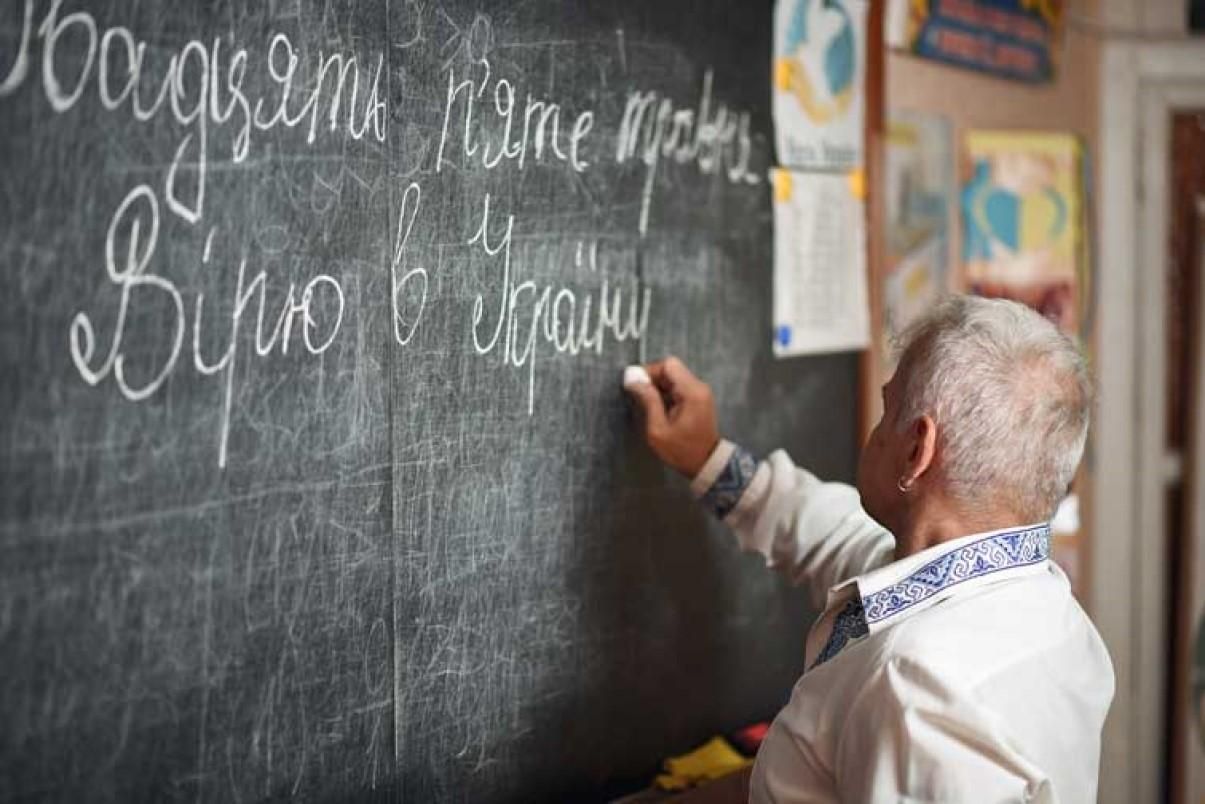 Двадцять п'яте травня
Вірю в Україну